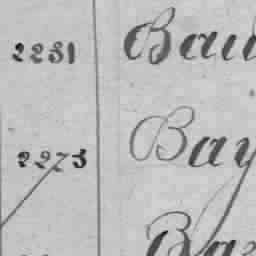 2231 Bau
2273 Bay
Baz